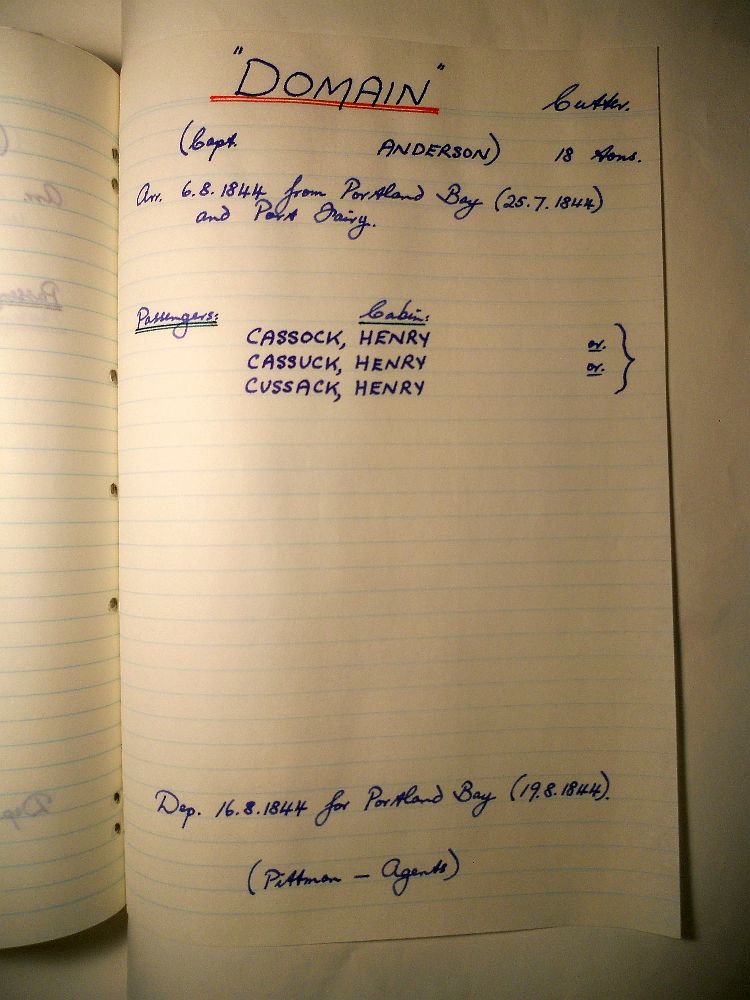 "DOMAIN" Cutter.
(Capt. ANDERSON) 18 tons.
Arr. 6.8.1844 from Portland Bay (25.7.1844)
and Port Fairy.
Passengers: Cabin:
CASSOCK, HENRY or.
CASSUCK, HENRY or.
CUSSACK, HENRY
Dep. 16.8.1844 for Portland Bay (19.8.1844).
(Pittman – Agents)